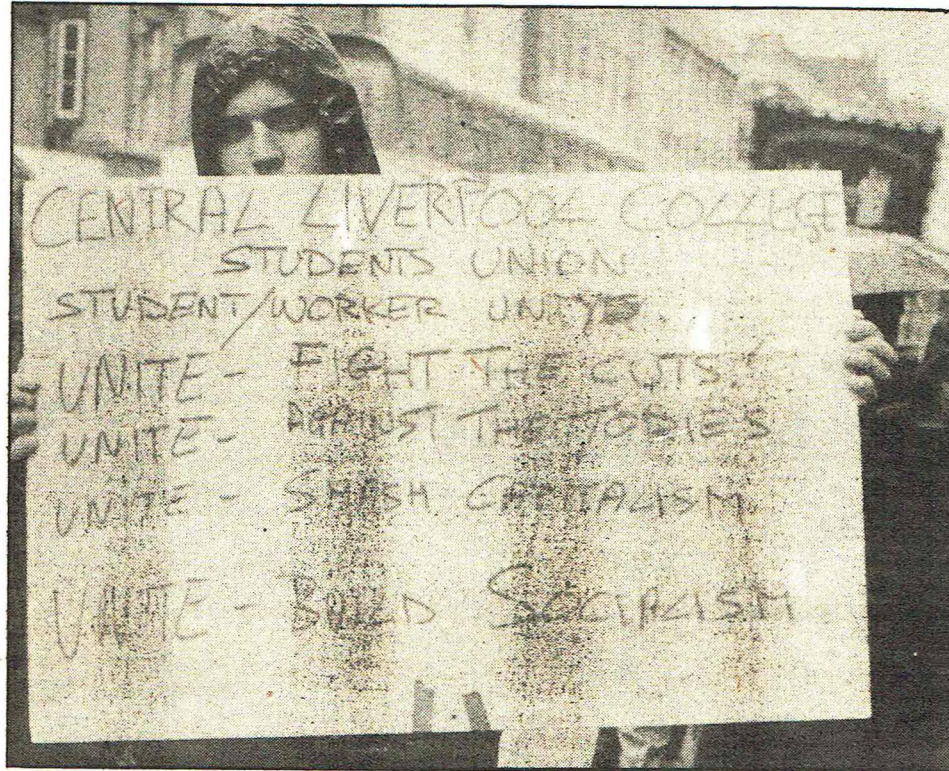 CENTRAL LIVERPOOL COLLEGE
STUDENTS UNION
STUDENT/WORKER UNITY
UNITE - FIGHT THE CUTS!
UNITE - AGAINST THE TORIES
UNITE - SMASH CAPITALISM
UNITE - BUILD SOCIALISM